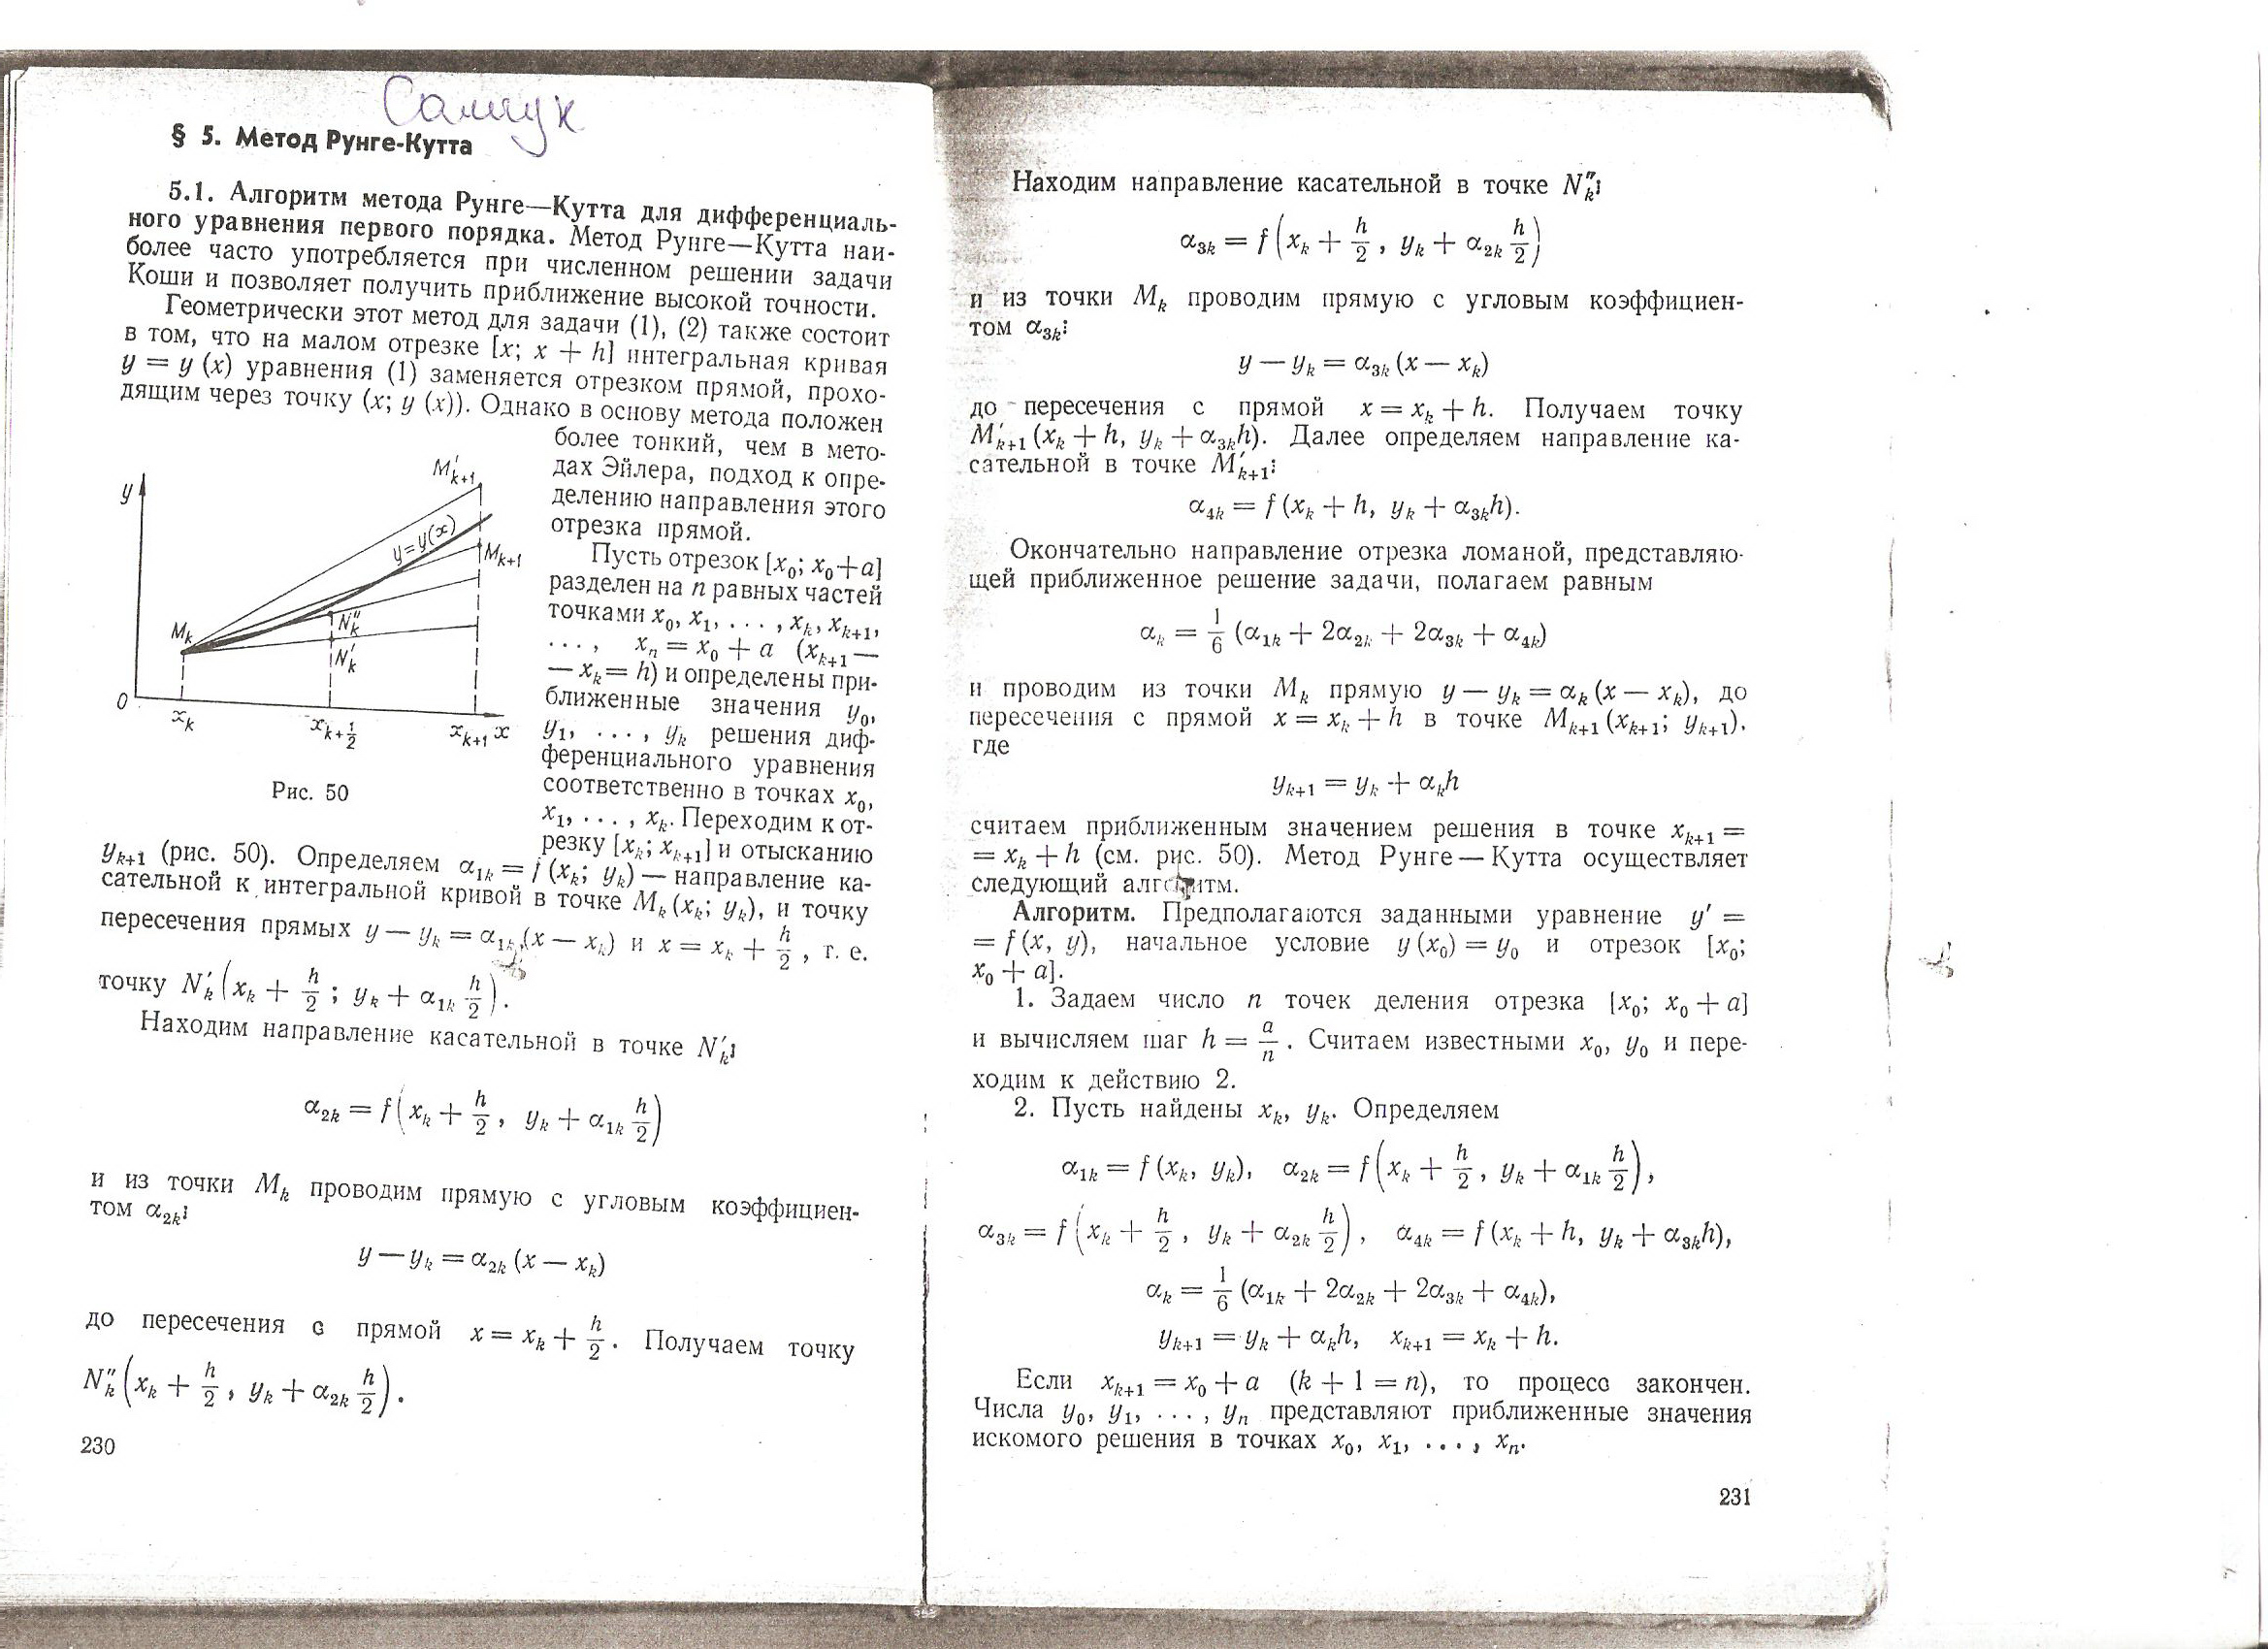 Самчук
§ 5. Метод Рунге-Кутта
5.1. Алгоритм метода Рунге—Кутта для дифференциаль-
ного уравнения первого порядка. Метод Рунге—Кутта наи-
более часто употребляется при численном решении задачи
Коши и позволяет получить приближение высокой точности.
Геометрически этот метод для задачи (1), (2) также состоит
в том, что на малом отрезке [x; x + h] интегральная кривая
y = y (x) уравнения (1) заменяется отрезком прямой, прохо-
дящим через точку (x; y (x)). Однако в основу метода положен
более тонкий, чем в мето-
дах Эйлера, подход к опре-
делению направления этого
отрезка прямой.
Пусть отрезок [x₀; x₀+a]
разделен на n равных частей
точками x₀, x₁, . . . , xₖ, xₖ₊₁,
. . . , xₙ = x₀ + a (xₖ₊₁ —
— xₖ = h) и определены при-
ближенные значения y₀,
y₁, . . . , yₖ решения диф-
ференциального уравнения
соответственно в точках x₀,
x₁, . . . , xₖ. Переходим к от-
резку [xₖ; xₖ₊₁] и отысканию
y
M′ₖ₊₁
y=y(x)
Mₖ₊₁
Mₖ
N″ₖ
N′ₖ
0
xₖ
xₖ₊½
xₖ₊₁ x
Рис. 50
yₖ₊₁ (рис. 50). Определяем α₁ₖ = f (xₖ; yₖ) — направление ка-
сательной к интегральной кривой в точке Mₖ (xₖ; yₖ), и точку
пересечения прямых y — yₖ = α₁ₖ (x — xₖ) и x = xₖ + h/2, т. е.
точку N′ₖ (xₖ + h/2; yₖ + α₁ₖ h/2).
Находим направление касательной в точке N′ₖ:
α₂ₖ = f (xₖ + h/2, yₖ + α₁ₖ h/2)
и из точки Mₖ проводим прямую с угловым коэффициен-
том α₂ₖ:
y — yₖ = α₂ₖ (x — xₖ)
до пересечения с прямой x = xₖ + h/2. Получаем точку
N″ₖ (xₖ + h/2, yₖ + α₂ₖ h/2).
230
Находим направление касательной в точке N″ₖ:
α₃ₖ = f (xₖ + h/2, yₖ + α₂ₖ h/2)
и из точки Mₖ проводим прямую с угловым коэффициен-
том α₃ₖ:
y — yₖ = α₃ₖ (x — xₖ)
до пересечения с прямой x = xₖ + h. Получаем точку
M′ₖ₊₁ (xₖ + h, yₖ + α₃ₖh). Далее определяем направление ка-
сательной в точке M′ₖ₊₁:
α₄ₖ = f (xₖ + h, yₖ + α₃ₖh).
Окончательно направление отрезка ломаной, представляю-
щей приближенное решение задачи, полагаем равным
αₖ = 1/6 (α₁ₖ + 2α₂ₖ + 2α₃ₖ + α₄ₖ)
и проводим из точки Mₖ прямую y — yₖ = αₖ (x — xₖ), до
пересечения с прямой x = xₖ + h в точке Mₖ₊₁ (xₖ₊₁; yₖ₊₁),
где
yₖ₊₁ = yₖ + αₖh
считаем приближенным значением решения в точке xₖ₊₁ =
= xₖ + h (см. рис. 50). Метод Рунге — Кутта осуществляет
следующий алгоритм.
Алгоритм. Предполагаются заданными уравнение y′ =
= f (x, y), начальное условие y (x₀) = y₀ и отрезок [x₀;
x₀ + a].
1. Задаем число n точек деления отрезка [x₀; x₀ + a]
и вычисляем шаг h = a/n. Считаем известными x₀, y₀ и пере-
ходим к действию 2.
2. Пусть найдены xₖ, yₖ. Определяем
α₁ₖ = f (xₖ, yₖ), α₂ₖ = f (xₖ + h/2, yₖ + α₁ₖ h/2),
α₃ₖ = f (xₖ + h/2, yₖ + α₂ₖ h/2), α₄ₖ = f (xₖ + h, yₖ + α₃ₖh),
αₖ = 1/6 (α₁ₖ + 2α₂ₖ + 2α₃ₖ + α₄ₖ),
yₖ₊₁ = yₖ + αₖh, xₖ₊₁ = xₖ + h.
Если xₖ₊₁ = x₀ + a (k + 1 = n), то процесс закончен.
Числа y₀, y₁, . . . , yₙ представляют приближенные значения
искомого решения в точках x₀, x₁, . . . , xₙ.
231